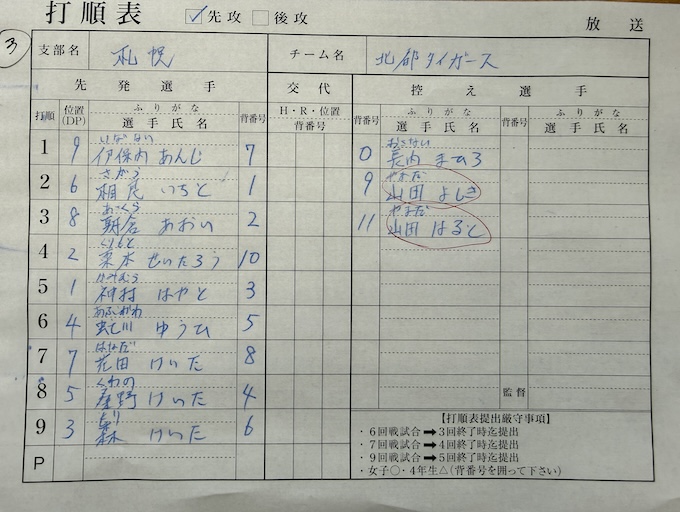 打順表 ☑先攻 □後攻 放送
3
支部名 札幌 チーム名 北部タイガース
先発選手 交代 控え選手
打順 位置(DP) ふりがな 選手氏名 背番号 H・R・位置 背番号 背番号 ふりがな 選手氏名 背番号 ふりがな 選手氏名
いなない おさない
1 9 伊保内 あんじ 7 0 長内 まひろ
さがら やまだ
2 6 相良 いちと 1 9 山田 よしき
あさくら やまだ
3 8 朝倉 あおい 2 11 山田 はると
くりもと
4 2 栗本 せいたろう 10
かみむら
5 1 神村 はやと 3
あぶかわ
6 4 虻川 ゆうひ 5
はなだ
7 7 花田 けいた 8
くわの
8 5 桑野 けいた 4 監督
もり
9 3 森 けいた 6
P
【打順表提出厳守事項】
・6回戦試合➡3回終了時迄提出
・7回戦試合➡4回終了時迄提出
・9回戦試合➡5回終了時迄提出
・女子○・4年生△(背番号を囲って下さい)